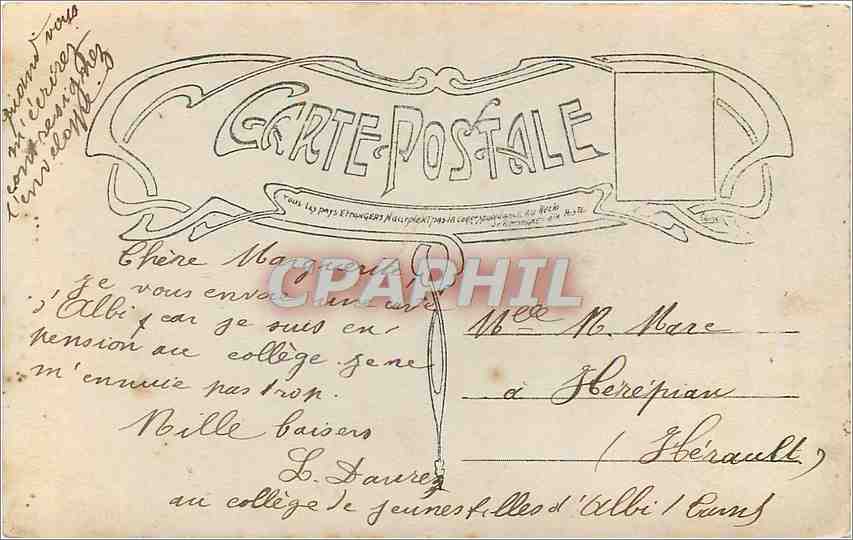 quand vous
m'écrirez
contresignez
l'enveloppe.
CARTE POSTALE
TOUS LES PAYS ETRANGERS N'ACCEPTENT PAS LA CORRESPONDANCE AU RECTO
CPAPHIL
Chère Marguerite
je vous envoie une carte
d'Albi, car je suis en
pension au collège. je ne
m'ennuie pas trop.
Mille baisers
L. Daurez
au collège de jeunes filles d'Albi (Tarn)
Mlle M. Marc
à Herépian
(Hérault)